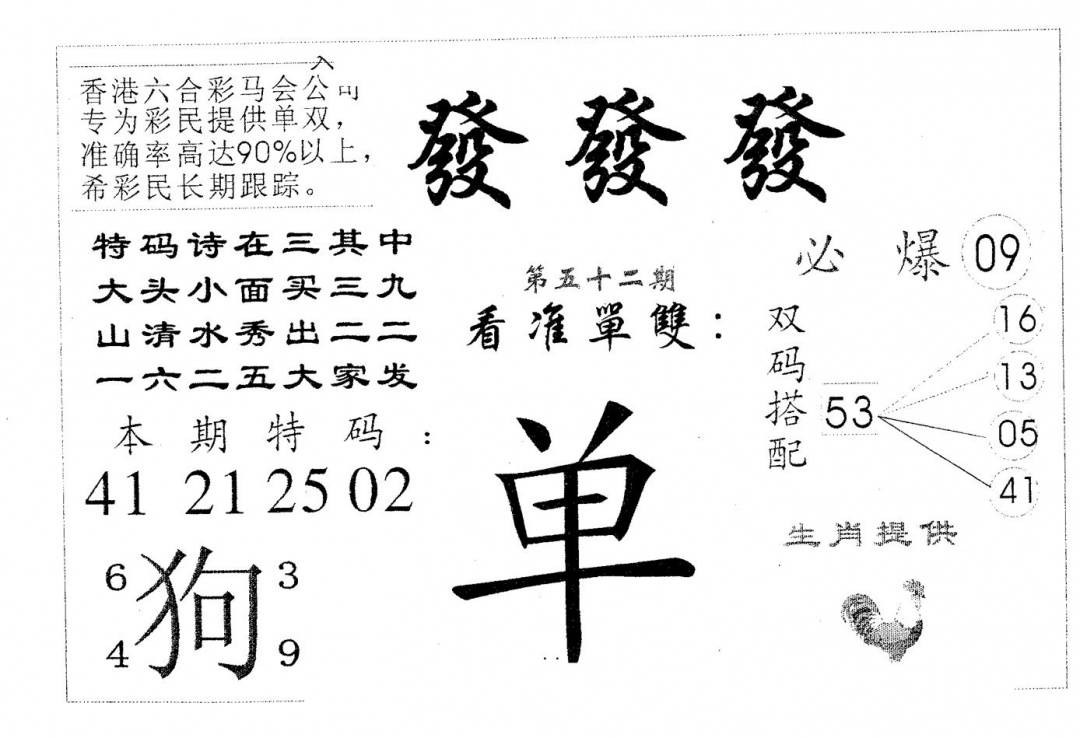 香港六合彩马会公司
专为彩民提供单双，
准确率高达90%以上，
希彩民长期跟踪。
發發發
特码诗在三其中
大头小面买三九
山清水秀出二二
一六二五大家发
第五十二期
看准單雙：
单
必爆 09
双码搭配
53
16
13
05
41
本期特码：
41 21 25 02
6 3
狗
4 9
生肖提供